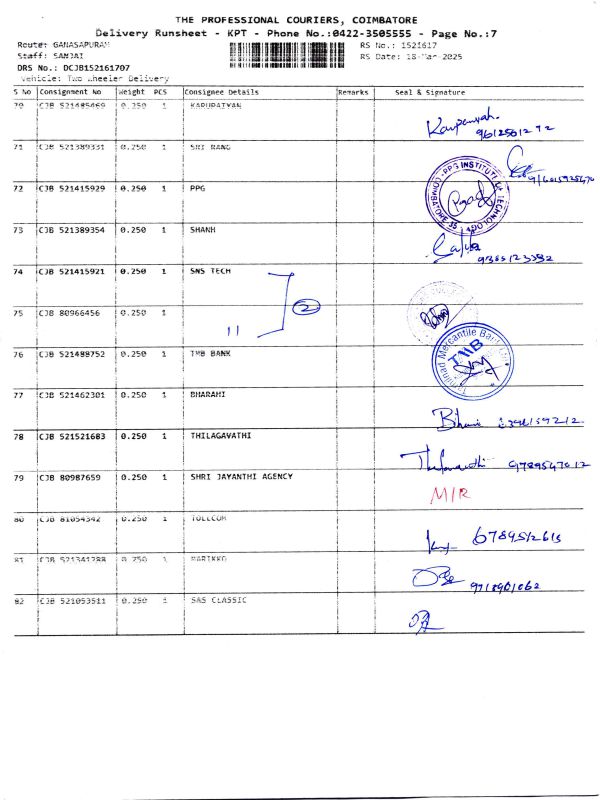 THE PROFESSIONAL COURIERS, COIMBATORE
Delivery Runsheet - KPT - Phone No.:0422-3505555 - Page No.:7
Route: GANASAPURAM
Staff: SANJAI
DRS No.: DCJB152161707
RS No.: 1521617
RS Date: 18-Mar-2025
Vehicle: Two Wheeler Delivery
S No Consignment No Weight PCS Consignee Details Remarks Seal & Signature
70 CJB 521485469 0.250 1
71 CJB 521389331 0.250 1 SRI RANG
72 CJB 521415929 0.250 1 PPG
PPG INSTITUTE OF TECHNOLOGY
COIMBATORE 35
73 CJB 521389354 0.250 1 SHANH
74 CJB 521415921 0.250 1 SNS TECH
2
75 CJB 80966456 0.250 1 11
76 CJB 521488752 0.250 1 TMB BANK
Tamilnad Mercantile Bank
TMB
77 CJB 521462301 0.250 1 BHARAHI
78 CJB 521521683 0.250 1 THILAGAVATHI
9789547012
79 CJB 80987659 0.250 1 SHRI JAYANTHI AGENCY M/R
80 CJB 81054342 0.250 1 TOLECOM
81 CJB 521341288 0.250 1 MARIKKO
82 CJB 521053511 0.250 1 SAS CLASSIC